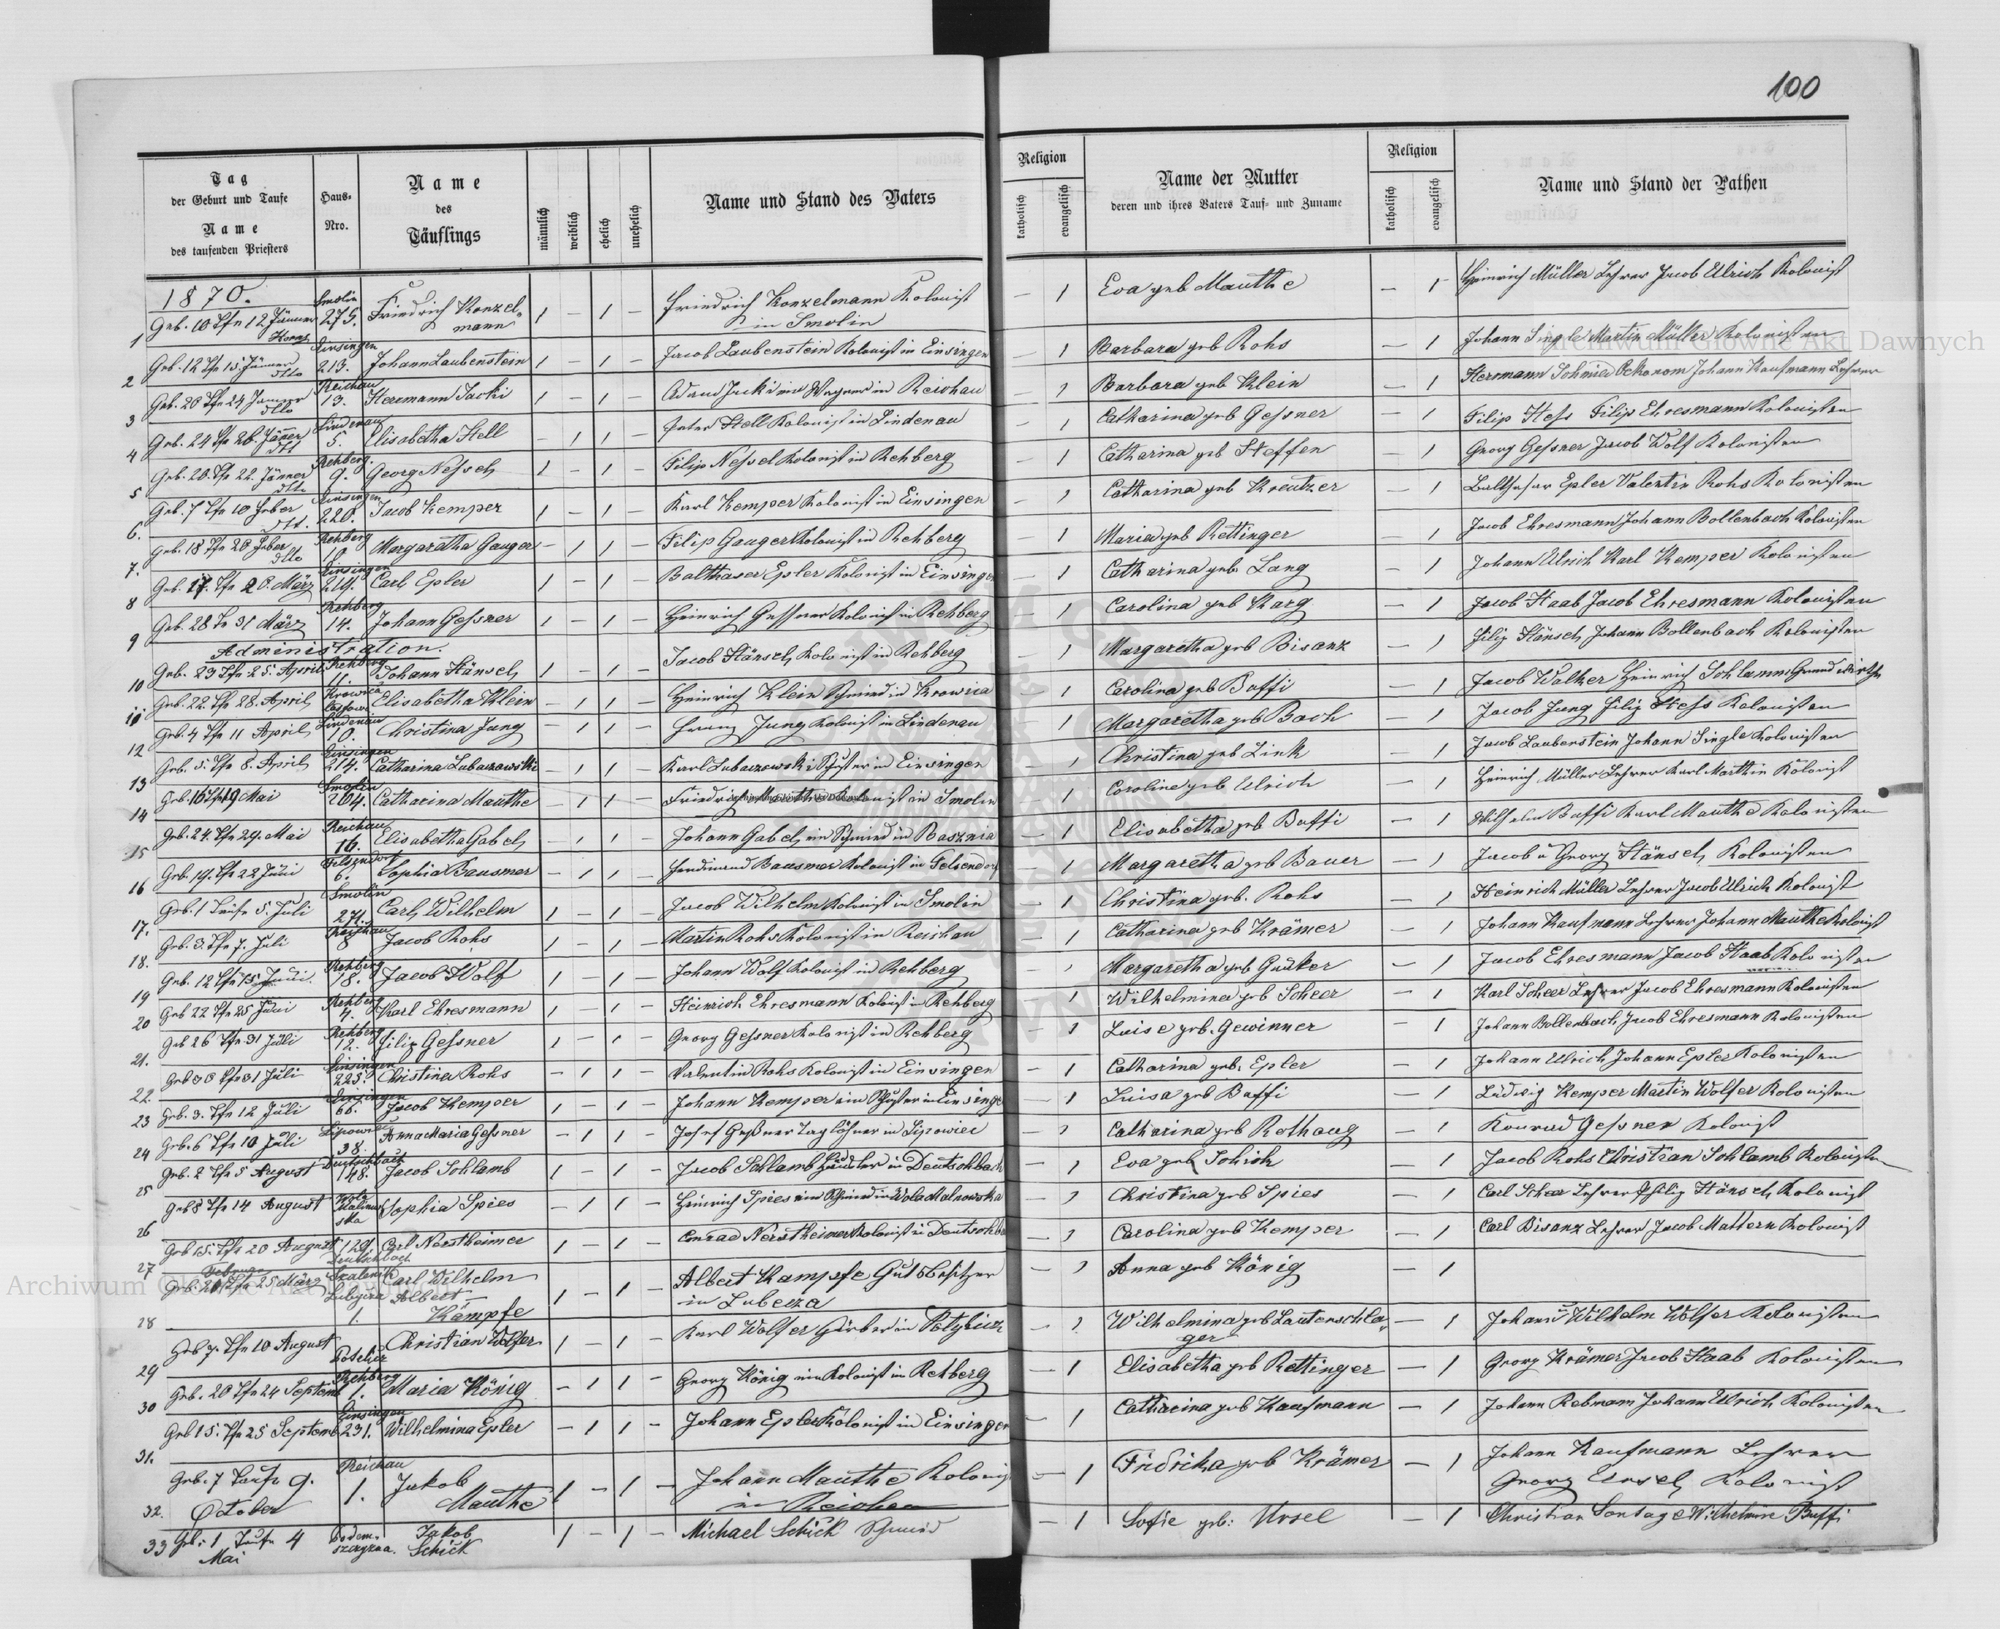 100
Tag
der Geburt und Taufe
Name
des taufenden Priesters
Haus-
Nro.
Name
des
Täuflings
männlich
weiblich
ehelich
unehelich
Name und Stand des Vaters
Religion
katholisch
evangelisch
Name der Mutter
deren und ihres Vaters Tauf- und Zuname
Religion
katholisch
evangelisch
Name und Stand der Pathen
1870.
1 Geb. 10 Tfe 12 Jänner Smolin 275. Friedrich Konzel- mann 1 – 1 – Friedrich Konzelmann Kolonist in Smolin – 1 Eva geb Mauthe – 1 Heinrich Müller Lehrer Jacob Ulrich Kolonist
2 Geb. 12 Tfe 15 Jänner dtto Einsingen 213. Johann Laubenstein 1 – 1 – Jacob Laubenstein Kolonist in Einsingen – 1 Barbara geb Rohs – 1 Johann Single Martin Müller Kolonisten
3 Geb. 20 Tfe 24 Jänner dtto Reichau 13. Herrmann Jacki 1 – 1 – Adam Jacki ein Wagner in Reichau – 1 Barbara geb Klein – 1 Herrmann Schmid Oekonom Johann Kaufmann Lehrer
4 Geb. 24 Tfe 26. Jäner dtt Lindenau 5. Elisabetha Hell – 1 1 – Peter Hell Kolonist in Lindenau – 1 Catharina geb Gessner – 1 Filip Hess Filip Ehresmann Kolonisten
5 Geb. 20. Tfe 22. Jänner dtto Rehberg. 9. Georg Nessel 1 – 1 – Filip Nessel Kolonist in Rehberg – 1 Catharina geb Steffen – 1 Georg Gessner Jacob Wolf Kolonisten
6. Geb. 7 Tfe 10 Feber dtt. Einsingen 220. Jacob Kemper 1 – 1 – Karl Kemper Kolonist in Einsingen – 1 Catharina geb Kreutzer – 1 Balthasar Epler Valentin Rohs Kolonisten
7. Geb. 18 Tfe 20 Feber dtto Rehberg 10 Margaretha Gauger – 1 1 – Filip Gauger Kolonist in Rehberg – 1 Maria geb Rettinger – 1 Jacob Ehresmann Johann Bollenbach Kolonisten
8 Geb. 17. Tfe 20. März Einsingen 219. Carl Epler 1 – 1 – Balthaser Epler Kolonist in Einsingen – 1 Catharina geb. Lang – 1 Johann Ulrich Karl Kemper Kolonisten
9 Geb. 28 Tfe 31 März Rehberg 14. Johann Gessner 1 – 1 – Heinrich Gessner Kolonist in Rehberg – 1 Carolina geb Karg – 1 Jacob Haab Jacob Ehresmann Kolonisten
Administration.
10 Geb. 23 Tfe 25. April Rehberg 11. Johann Hänsel 1 – 1 – Jacob Hänsel Kolonist in Rehberg – 1 Margaretha geb Bisanz – 1 Filip Hänsel Johann Bollenbach Kolonisten
11 Geb. 22. Tfe 28. April Krowica Elisabetha Klein – 1 1 – Heinrich Klein Schmied in Krowica – 1 Carolina geb Buffi – 1 Jacob Walter Heinrich Schlamm Grundwirthe
12 Geb. 4 Tfe 11 April Lindenau 10. Christina Jung – 1 1 – Franz Jung Kolonist in Lindenau – 1 Margaretha geb Bach – 1 Jacob Jung Filip Hess Kolonisten
13 Geb. 5. Tfe 8. April Einsingen 214. Catharina Lubaczowski – 1 1 – Karl Lubaczowski Schuster in Einsingen – 1 Christina geb Link – 1 Jacob Laubenstein Johann Single Kolonisten
14 Geb. 16 Tfe 19 Mai Smolin 264. Catharina Mauthe – 1 1 – Friedrich Mauthe Kolonist in Smolin – 1 Carolina geb Ulrich – 1 Heinrich Müller Lehrer Karl Marthin Kolonist
15 Geb. 24. Tfe 29. Mai Reichau 16. Elisabetha Gabel – 1 1 – Johann Gabel ein Schmied in Basznia – 1 Elisabetha geb Buffi – 1 Wilhelm Buffi Karl Mauthe Kolonisten
16 Geb. 19. Tfe 22 Juni Felzendorf 6. Sophia Bausmer – 1 1 – Ferdinand Bausmer Kolonist in Felsendorf – 1 Margaretha geb Bauer – 1 Jacob u Georg Hänsel Kolonisten
17. Geb. 1 Taufe 5. Juli Smolin 271. Carl Wilhelm 1 – 1 – Jacob Wilhelm Kolonist in Smolin – 1 Christina geb. Rohs – 1 Heinrich Müller Lehrer Jacob Ulrich Kolonist
18. Geb. 3 Tfe 7. Juli Reichau 8 Jacob Rohs 1 – 1 – Martin Rohs Kolonist in Reichau – 1 Catharina geb Krämer – 1 Johann Kaufmann Lehrer Johann Mauthe Kolonist
19 Geb. 12 Tfe 15 Juni. Rehberg 18. Jacob Wolf 1 – 1 – Johann Wolf Kolonist in Rehberg – 1 Margaretha geb – 1 Jacob Ehresmann Jacob Haab Kolonisten
20 Geb 22 Tfe 25 Juni Rehberg 4. Karl Ehresmann 1 – 1 – Heinrich Ehresmann Kolonist in Rehberg – 1 Wilhelmina geb Scheer – 1 Karl Scheer Lehrer Jacob Ehresmann Kolonisten
21. Geb 26 Tfe 31 Juli Rehberg 12. Filip Gessner 1 – 1 – Georg Gessner Kolonist in Rehberg – 1 Luise geb. Gewinner – 1 Johann Bollenbach Jacob Ehresmann Kolonisten
22. Geb 30 Tfe 31 Juli Einsingen 223. Christina Rohs – 1 1 – Valentin Rohs Kolonist in Einsingen – 1 Catharina geb. Epler – 1 Johann Ulrich Johann Epler Kolonisten
23 Geb. 3. Tfe 12 Juli Einsingen 66. Jacob Kemper 1 – 1 – Johann Kemper ein Schuster in Einsingen – 1 Luisa geb Buffi – 1 Ludwig Kemper Martin Wolfer Kolonisten
24 Geb. 6 Tfe 10 Juli Lipowiec 38. Anna Maria Gessner – 1 1 – Josef Gessner Taglöhner in Lipowiec – 1 Catharina geb Rothaug – 1 Konrad Gessner Kolonist
25 Geb. 2 Tfe 5 August Deutschbach 148. Jacob Schlamb 1 – 1 – Jacob Schlamb Häusler in Deutschbach – 1 Eva geb Schick – 1 Jacob Rohs Christian Schlamb Kolonisten
26 Geb 8 Tfe 14 August Sophia Spies – 1 1 – Heinrich Spies ein Schmied in Wola Malnowska – 1 Christina geb Spies – 1 Carl Scheer Lehrer Philip Hänsel Kolonist
27 Geb 15. Tfe 20 August 129. Deutschbach Carl Nerstheimer 1 – 1 – Conrad Nerstheimer Kolonist in Deutschba – 1 Carolina geb Kemper – 1 Carl Bisanz Lehrer Jacob Mattern Kolonist
28 Geb. Tfe 25 März 1. Carl Wilhelm Albert Kämpfe 1 – 1 Albert Kämpfe Gutsbesitzer in Lubecza – 1 Anna geb König – 1
29 Geb 7. Tfe 10 August Potelicz Christian Wolfer 1 – 1 – Karl Wolfer Gärber in Potylicz – 1 Wilhelmina geb Lautenschla- ger – 1 Johann Wilhelm Wolfer Kolonisten
30 Geb. 20 Tfe 24 Septemb Rehberg 1. Maria König – 1 1 – Georg König ein Kolonist in Rehberg – 1 Elisabetha geb Rettinger – 1 Georg Krämer Jacob Haab Kolonisten
31. Geb 15. Tfe 25 Septemb Einsingen 231. Wilhelmina Epler – 1 1 – Johann Epler Kolonist in Einsingen – 1 Catharina geb Kaufmann – 1 Johann Rebmann Johann Ulrich Kolonisten
32. Geb. 7 Taufe 9. October Reichau 1. Jakob Mauthe 1 – 1 – Johann Mauthe Kolonist in Reichau – 1 Fridrika geb Krämer – 1 Johann Kaufmann Lehrer Georg Kolonist
33 Geb: 1 Taufe 4 Mai Jakob Schick 1 – 1 – Michael Schick Schmid – 1 Sofie geb: Ursel – 1 Christian Sontag Wilhelmine Buffi
Archiwum Główne Akt Dawnych
Archiwum